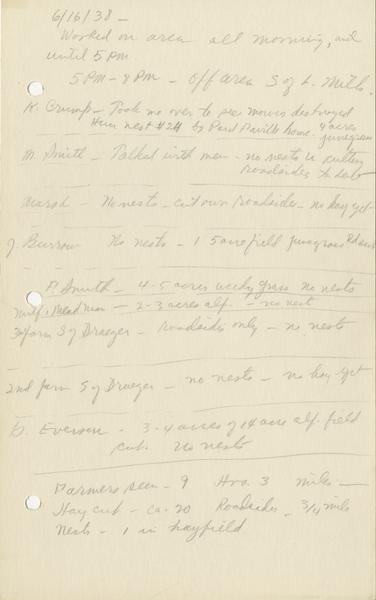 6/16/38 -
Worked on area all morning, and
until 5 PM
5 PM - 8 PM - Off area S of L. Mills.
K. Crump - Took me over to see mower destroyed
Hun nest #24 by Pard Paville home. 4 acres
junegrass
M. Smith - Talked with men - no nests in cutting
roadsides to date
Marsh - No nests - cut own roadsides - no hay yet
J. Burrow No nests - 1 5 acre field junegrass
P. Smith - 4-5 acres weedy grass no nests
- 2-3 acres alf. - no nest
3 farm S of Draeger - Roadsides only - no nests
2nd farm S of Draeger - no nests - no hay yet
G. Everson - 3-4 acres of 14 acre alf. field
cut. no nests
Farmers seen - 9 Hrs. 3 miles -
Hay cut - ca. 20 Roadsides - 3/4 mile
Nests - 1 in hayfield